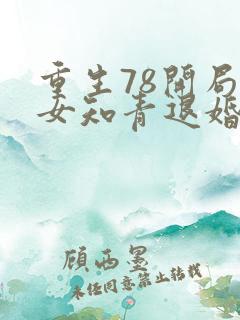 重生78開局
女知青退婚
顾西墨
未经同意禁止转载